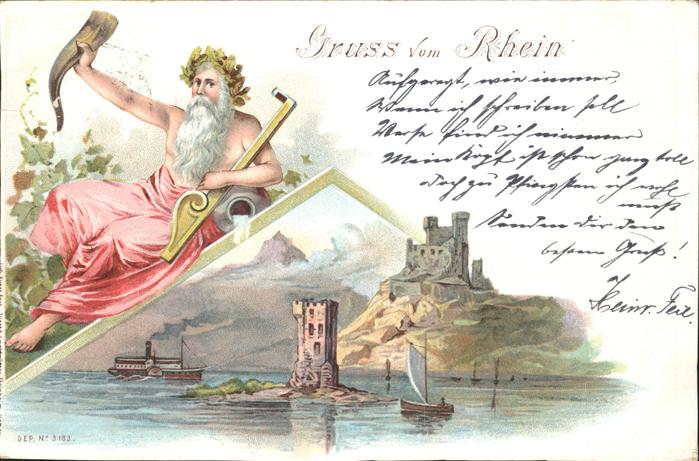 Gruss vom Rhein
Aufgeregt, wie immer,
Wenn ich schreiben soll
Verse find ich nimmer
Mein Kopf ist schon ganz toll
doch zu Pfingsten ich wohl
muß
Senden dir den
besten Gruß!
Heinr.
DEP. No 3183.